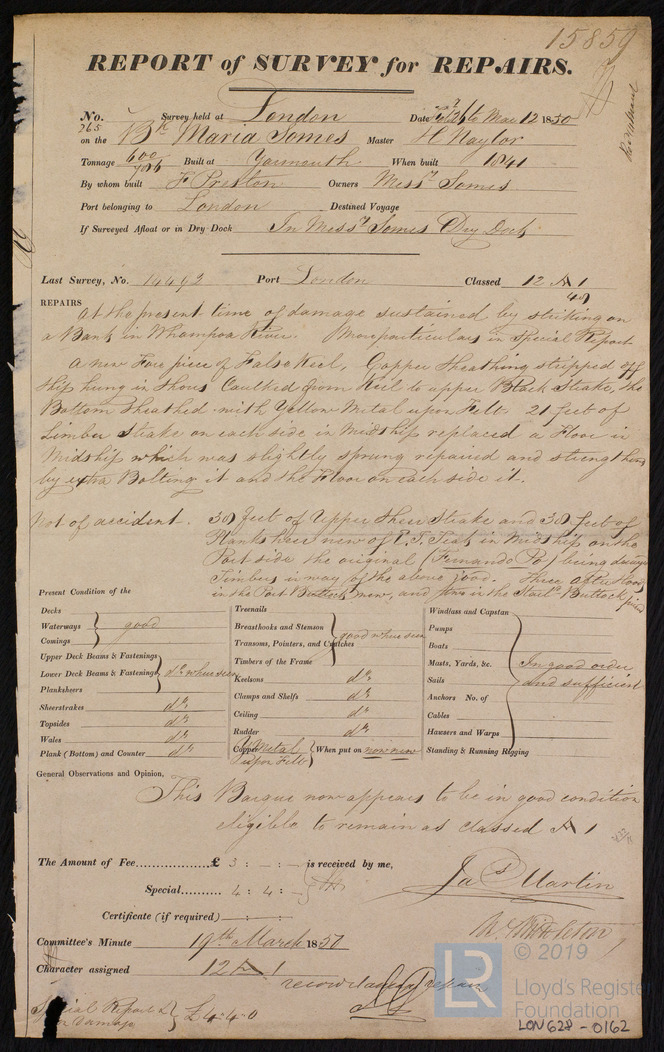 15859
REPORT of SURVEY for REPAIRS.
No. 265 Survey held at London Date Feb 26 to Mar 12 1850
on the Bk Maria Somes Master H Naylor
Tonnage 600/786 Built at Yarmouth When built 1841
By whom built F Preston Owners Messrs Somes
Port belonging to London Destined Voyage
If Surveyed Afloat or in Dry Dock In Messrs Somes Dry Dock
Last Survey, No. 14493 Port London Classed 12 A 1
49
REPAIRS at the present time of damage sustained by striking on
a Bank in Whampoa River. More particulars in Special Report
A new Fore piece of False Keel, Copper Sheathing stripped off
Ship hung in Shores Caulked from Keel to upper Black Strake, the
Bottom Sheathed with Yellow Metal upon Felt 21 feet of
Limber Strake on each side in Midship replaced a Floor in
Midship which was slightly sprung repaired and strengthened
by extra Bolting it and the Floor on each side it.
Not of accident. 30 feet of Upper Sheer Strake and 30 feet of
Plank Sheer new of E.I. Teak in Midship on the
Port side the original (Fernando Po) being decayed
Timbers in way of the above good. Three after Hoods
in the Port Buttock new, and in the Starbd Buttock
Present Condition of the
Decks
Waterways good
Comings
Upper Deck Beams & Fastenings
Lower Deck Beams & Fastenings do where seen
Planksheers
Sheerstrakes do
Topsides do
Wales do
Plank (Bottom) and Counter do
Treenails
Breasthooks and Stemson good where seen
Transoms, Pointers, and Crutches
Timbers of the Frame
Keelsons do
Clamps and Shelfs do
Ceiling do
Rudder do
Copper Y Metal upon Felt When put on now new
Windlass and Capstan
Pumps
Boats
Masts, Yards, &c. In good order
Sails and sufficient
Anchors No. of
Cables
Hawsers and Warps
Standing & Running Rigging
General Observations and Opinion,
This Barque now appears to be in good condition
eligible to remain as classed A 1
The Amount of Fee £ 3 : - : - is received by me,
Special 4 : 4 : -
Jas Martin
Certificate (if required) - : - : -
Committee's Minute 19th March 1850
Character assigned 12 A 1
Special Report for Damage £4-4-0
LR
© 2019
Lloyd's Register
Foundation
LON628-0162